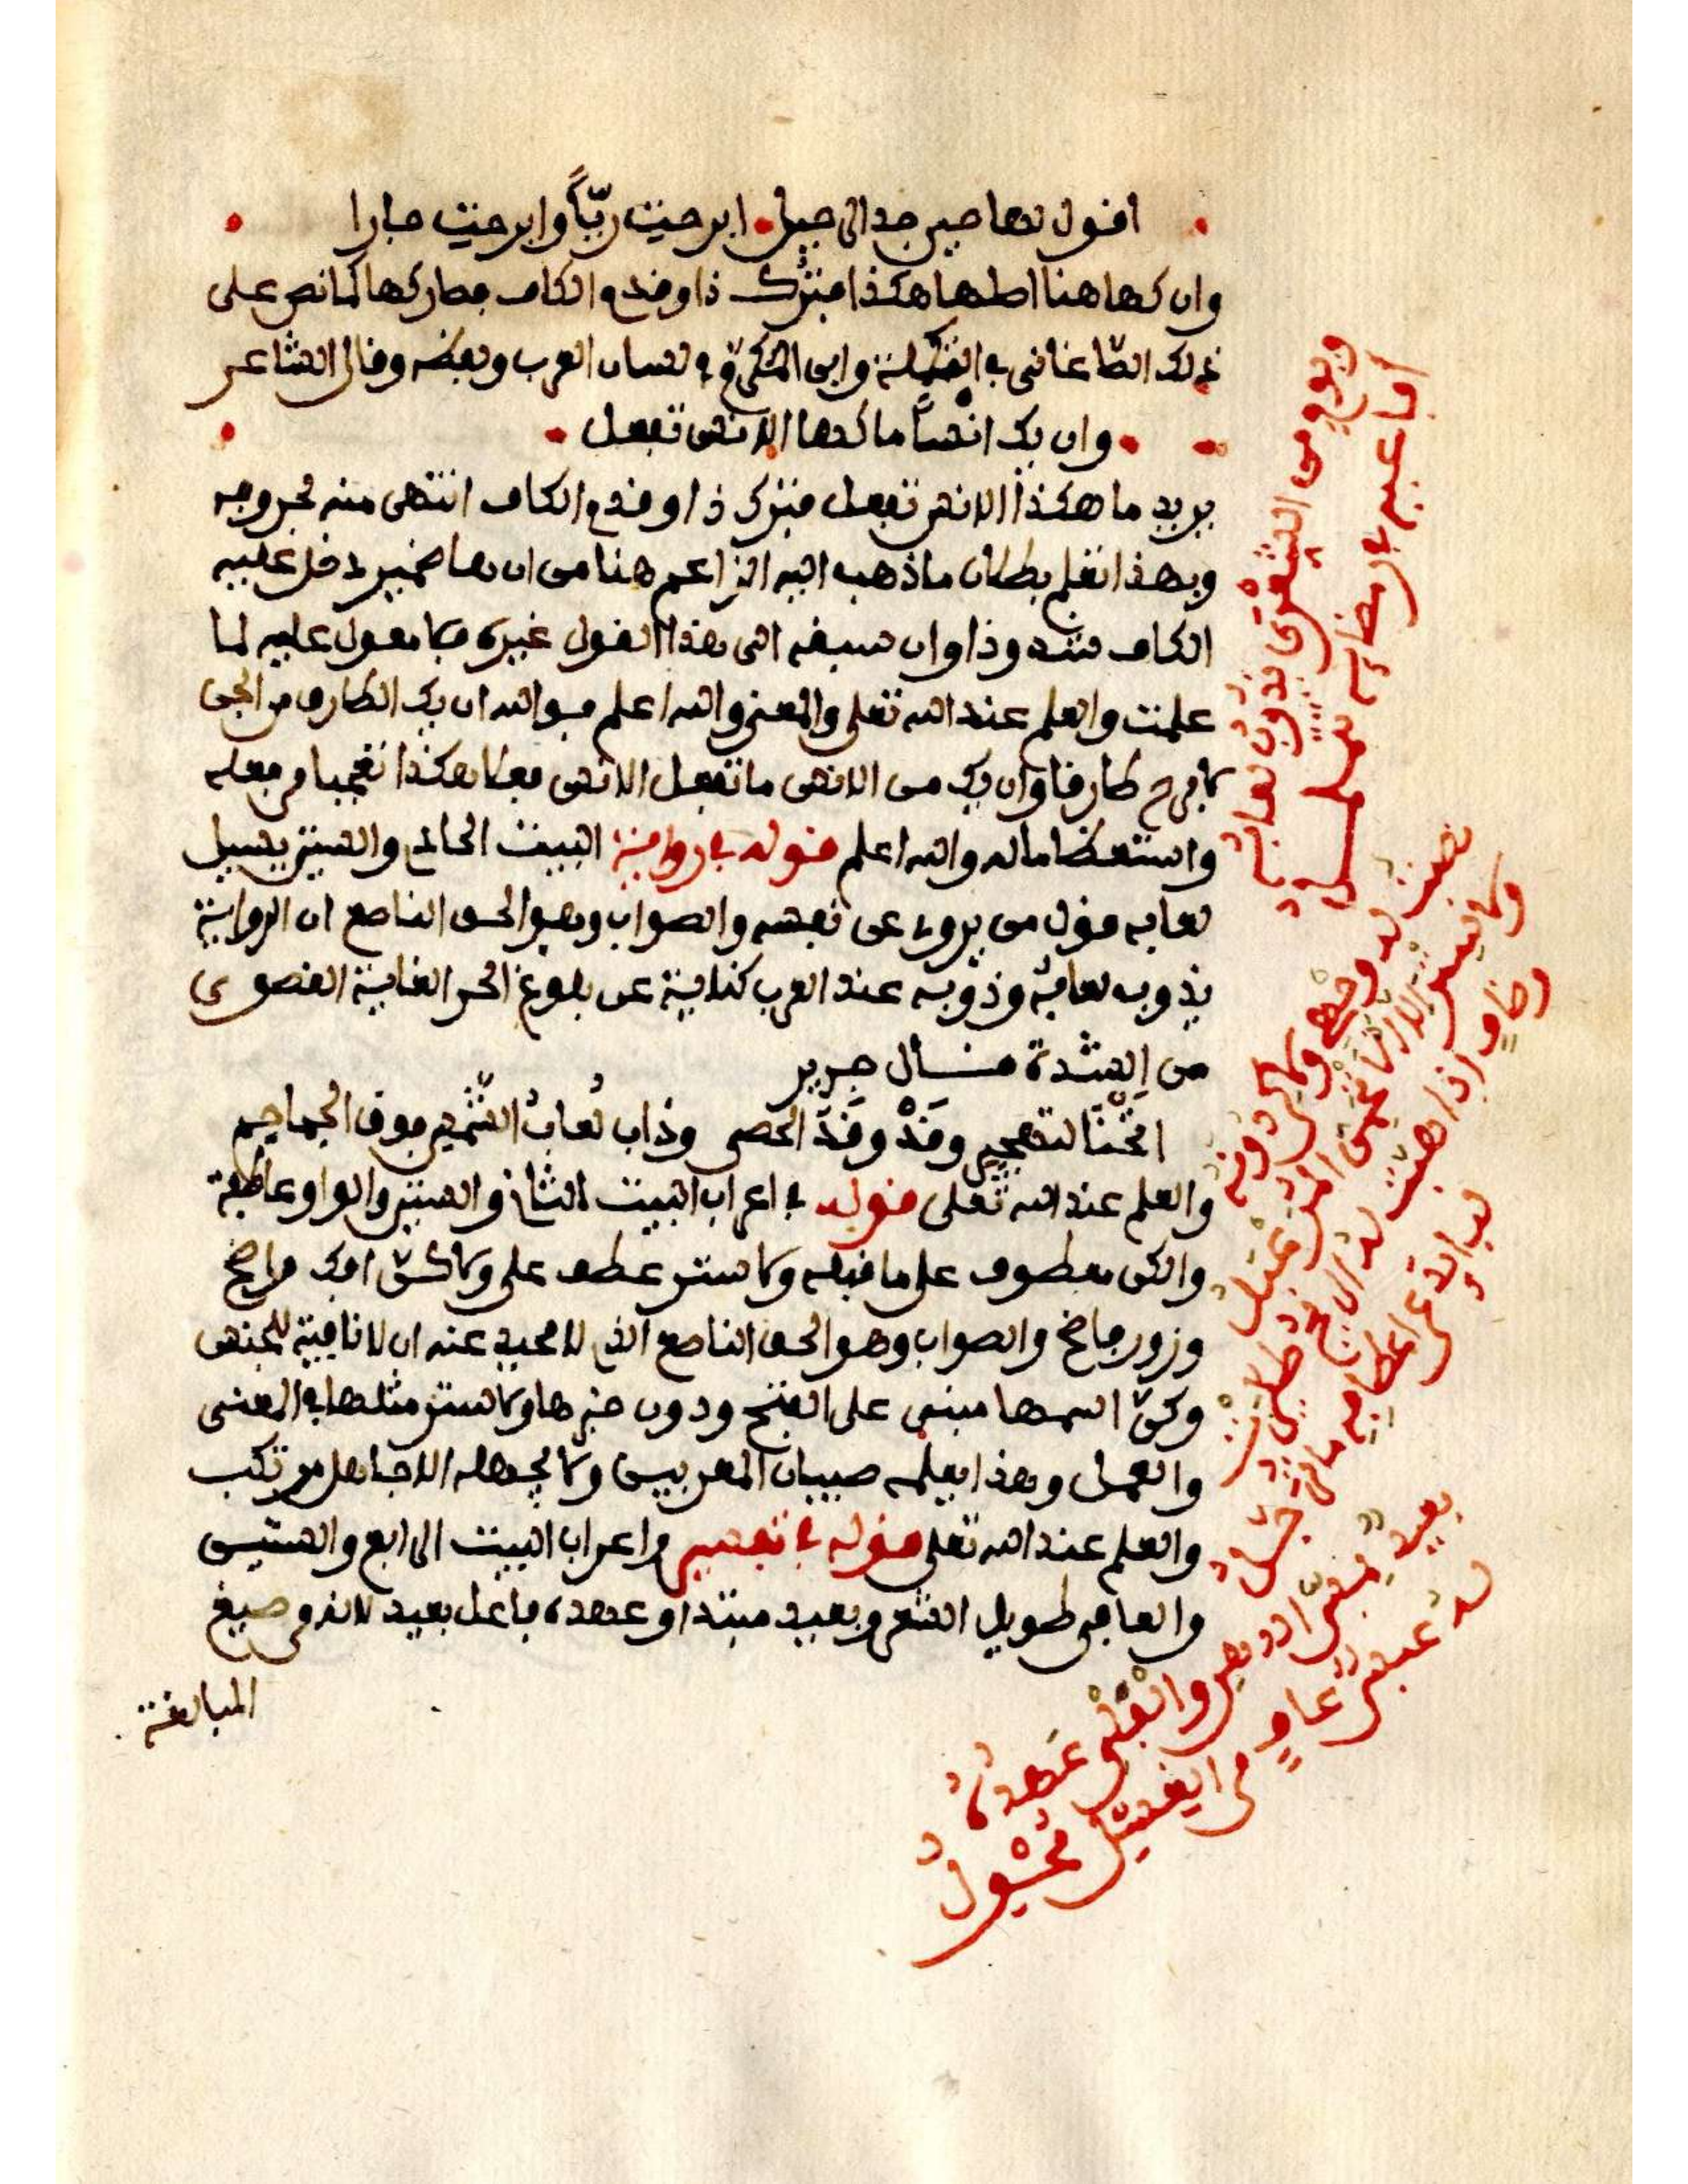 اقول لها حين جد الرحيل ابرحت ربّاً وابرحت جارا
وان كها هنا اصلها هكذا فترك ذا وقدم الكاف فصار كها كما نص على
ذلك الصّاغاني في التكملة وابن المكرّم في لسان العرب ونصّه وقال الشاعر
وان يك انساً ما كها الانس تفعل
يريد ما هكذا الانس تفعل فترك ذا وقدم الكاف انتهى منه بحروفه
وبهذا تعلم بطلان ماذهب اليه الزاعم هنا من ان ها ضمير دخل عليه
الكاف شذوذا وان سبقه الى هذا القول غيره فلا معول عليه لما
علمت والعلم عند الله تعلى والمعنى والله اعلم فوالله ان يك الطارق من الجن
لابرح طارقا وان يك من الانس ما تفعل الانس فعلا هكذا تعجبا من فعله
واستعظاما له والله اعلم قوله في رواية البيت الحادي والستين يسيل
لعابه قول من يروي عن نفسه والصواب وهو الحق الناصع ان الرواية
يذوب لعابه وذوبه عند العرب كناية عن بلوغ الحر الغاية القصوى
من الشدة قال جرير
انخنا لتهجير وقد وقد الحصى وذاب لعاب الشمس فوق الجماجم
والعلم عند الله تعلى قوله في اعراب البيت الثاني والستين والواو عاطفة
والكن معطوف على ما قبله ولا ستر عطف على ولا كنّ افك واضح
وزور فاضح والصواب وهو الحق الناصع الذي لا محيد عنه ان لا نافية للجنس
وكنّ اسمها مبني على الفتح ودون خبرها ولا ستر مثلها في المعنى
والعمل وهذا يعلمه صبيان المعربين ولا يجهله الا جاهل مرتكب
والعلم عند الله تعلى قوله في تفسير واعراب البيت الرابع والستين
والعافي طويل الشعر وبعيد مبتدا وعهده فاعل بعيد لانه من صيغ
المبالغة
ويوم من الشعرى يذوب لعابه
افاعيه في رمضائه تتململ
نصبت له وجهي ولا كن دونه
ولا ستر الا الاتحمي المرعبل
وضاف اذا هبت له الريح طيرت
لبائد عن اعطافه ما ترجل
بعيد بمس الدهن والفلي عهده
له عبس عاف من الغسل محول